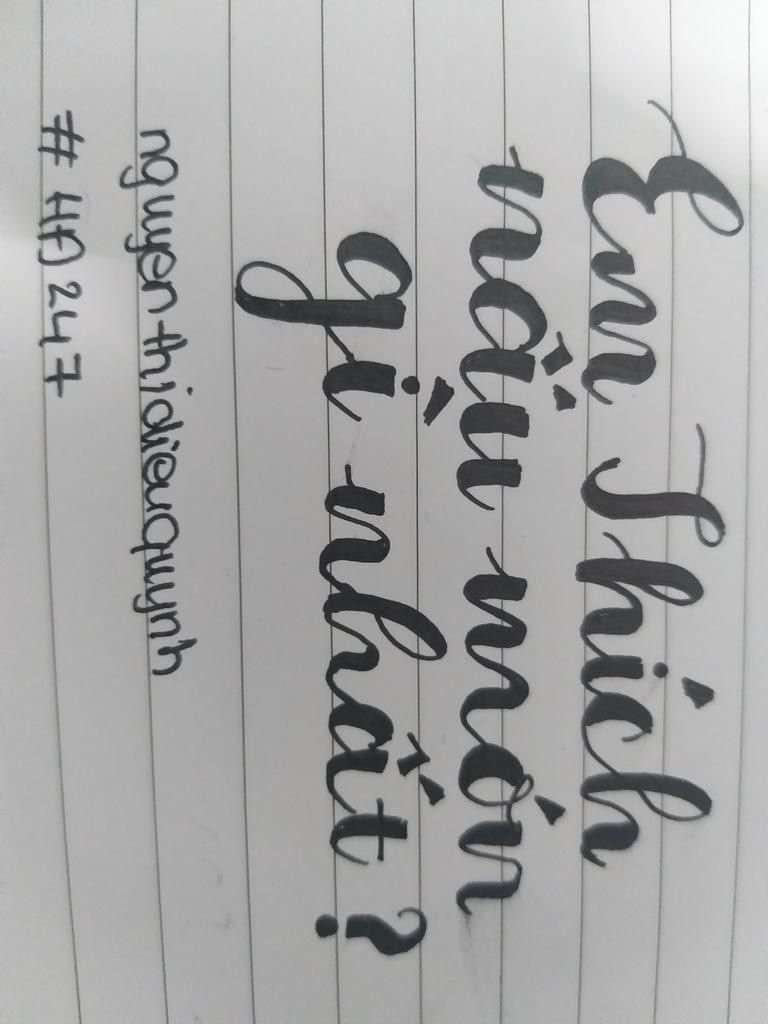 Em Thích
nấu món
gì nhất?
nguyenthidieuquynh
#HA247